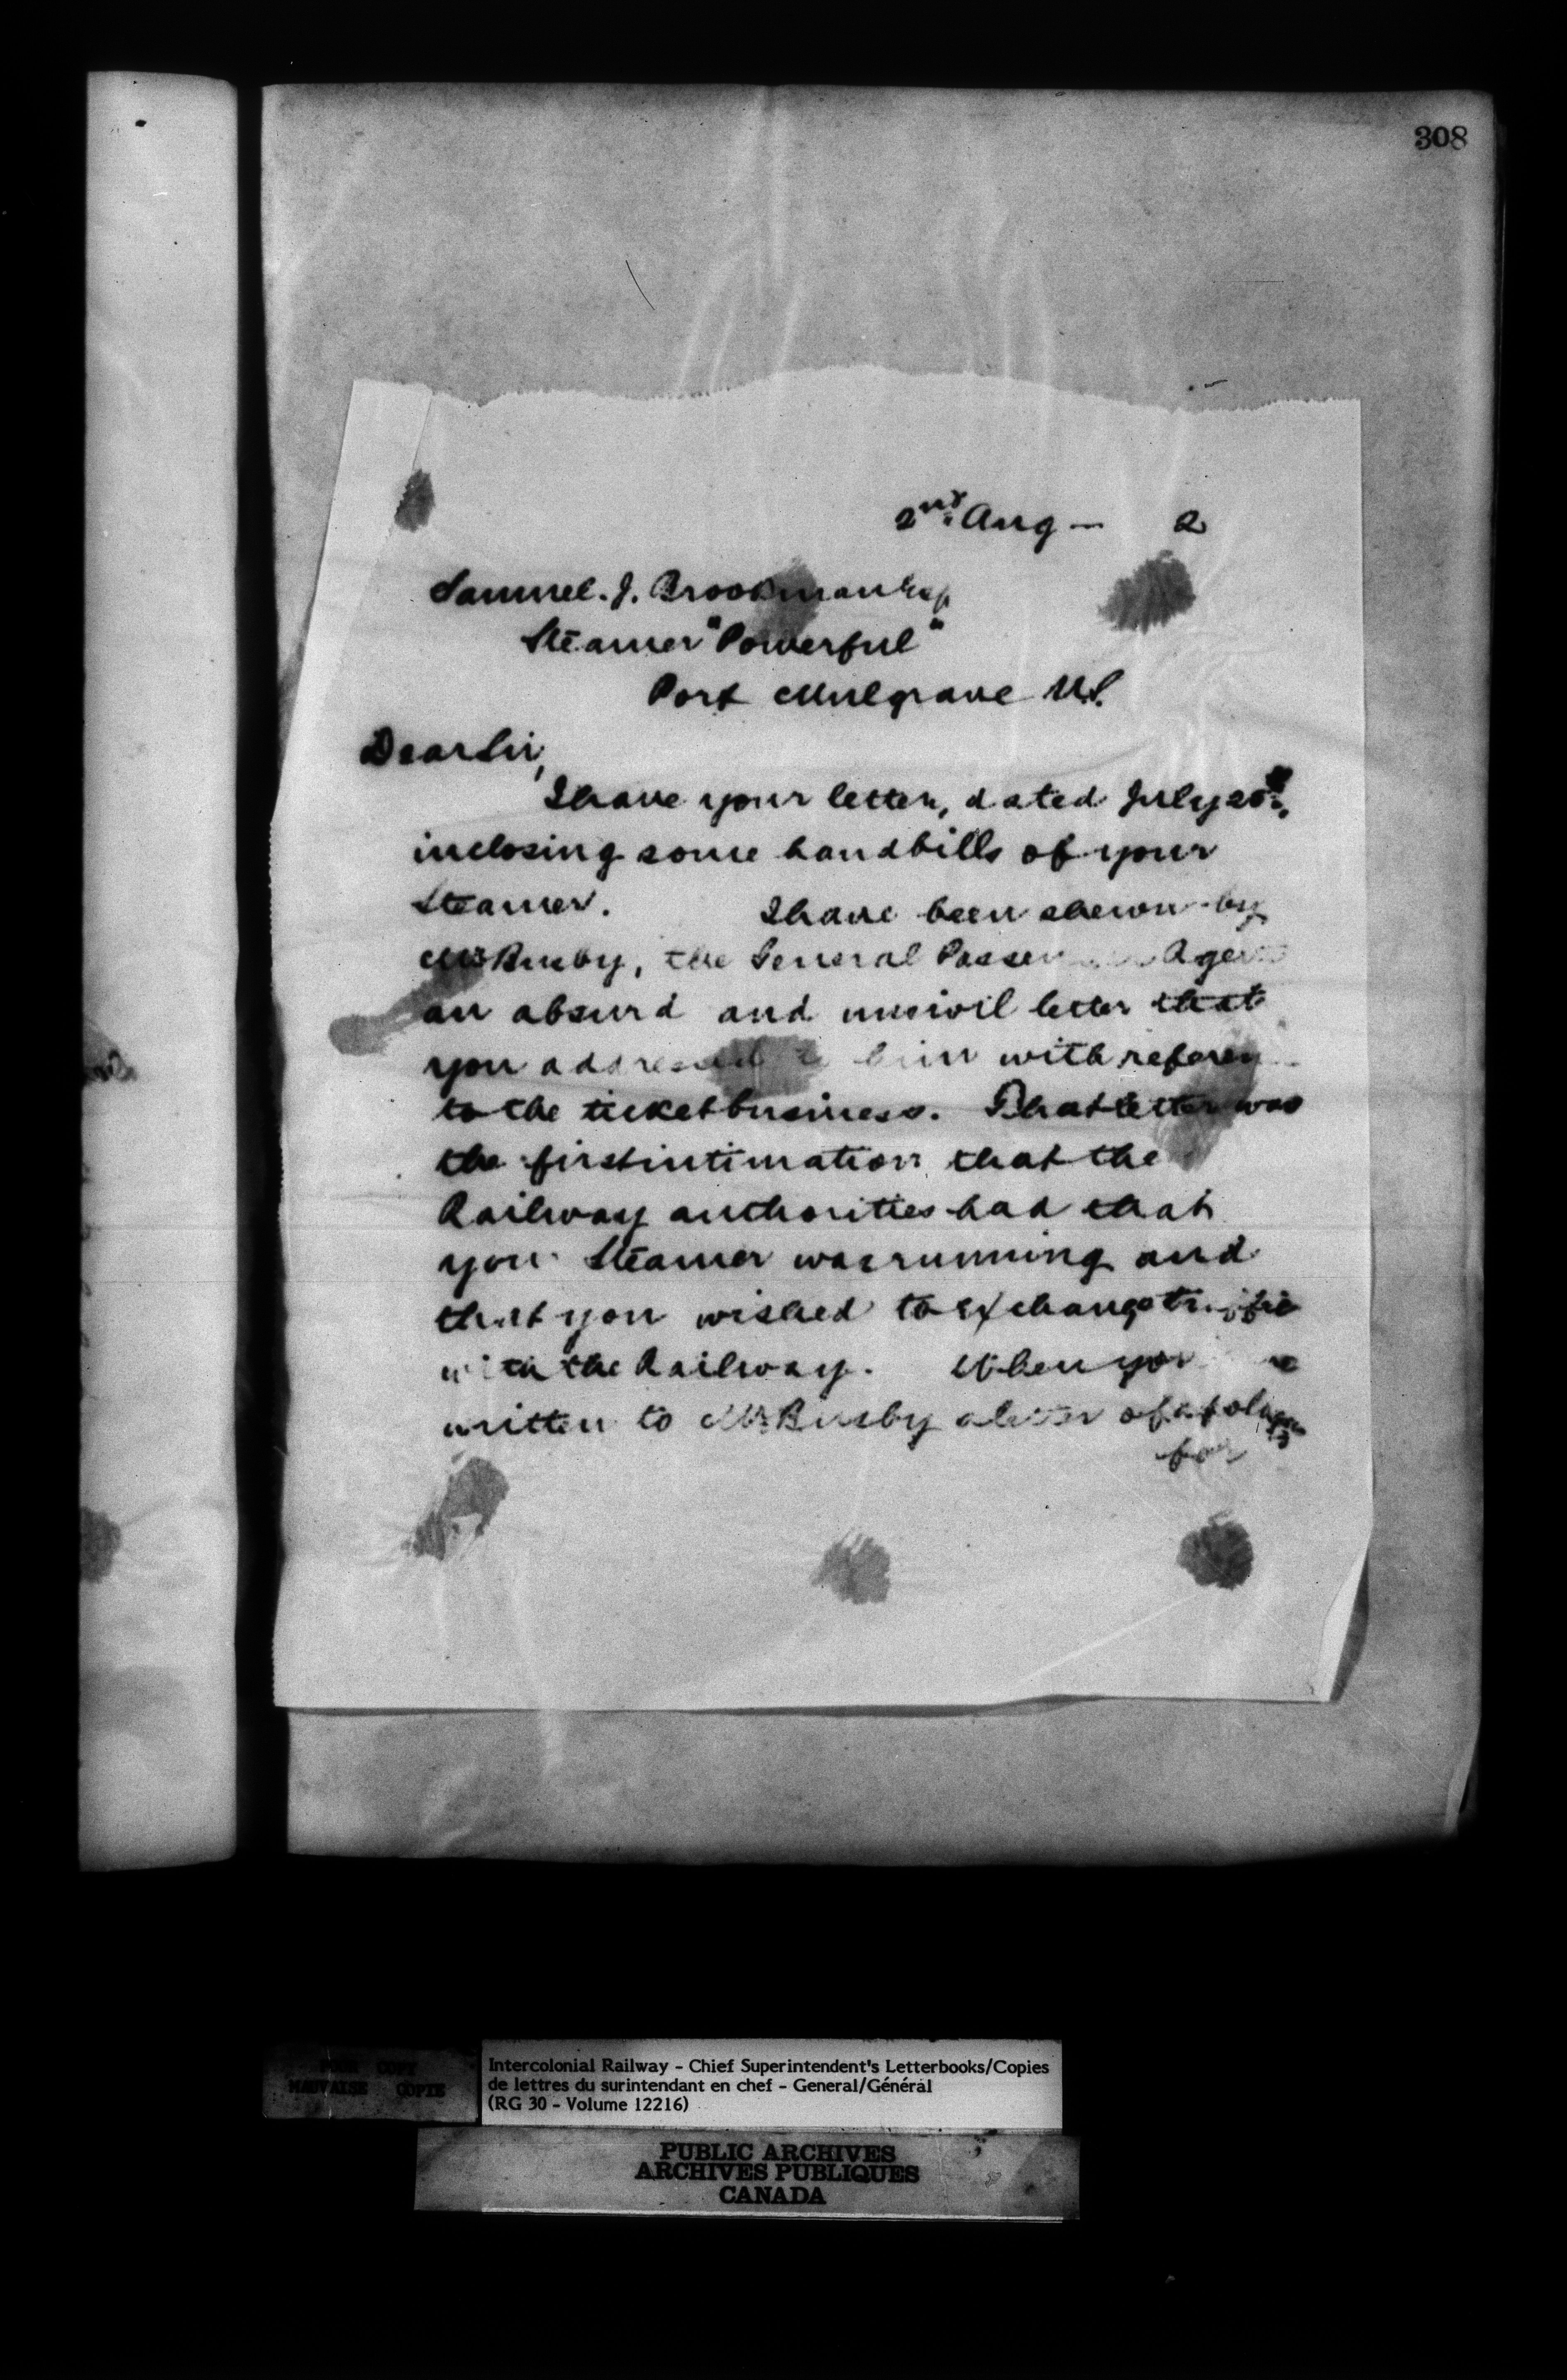 308
2nd Aug — 2
Samuel. J. Brookman Esq
Steamer "Powerful"
Port Mulgrave N.S.
Dear Sir,
I have your letter, dated July 20th,
inclosing some handbills of your
Steamer. I have been shewn by
Mr Busby, the General Passen Agent
an absurd and uncivil letter that
you addressed to him with referen
to the ticket business. That letter was
the first intimation that the
Railway authorities had that
your Steamer was running and
that you wished to exchange traffic
with the Railway. When you
written to Mr Busby a letter of apology
for
POOR COPY
MAUVAISE COPIE
Intercolonial Railway - Chief Superintendent's Letterbooks/Copies
de lettres du surintendant en chef - General/Général
(RG 30 - Volume 12216)
PUBLIC ARCHIVES
ARCHIVES PUBLIQUES
CANADA